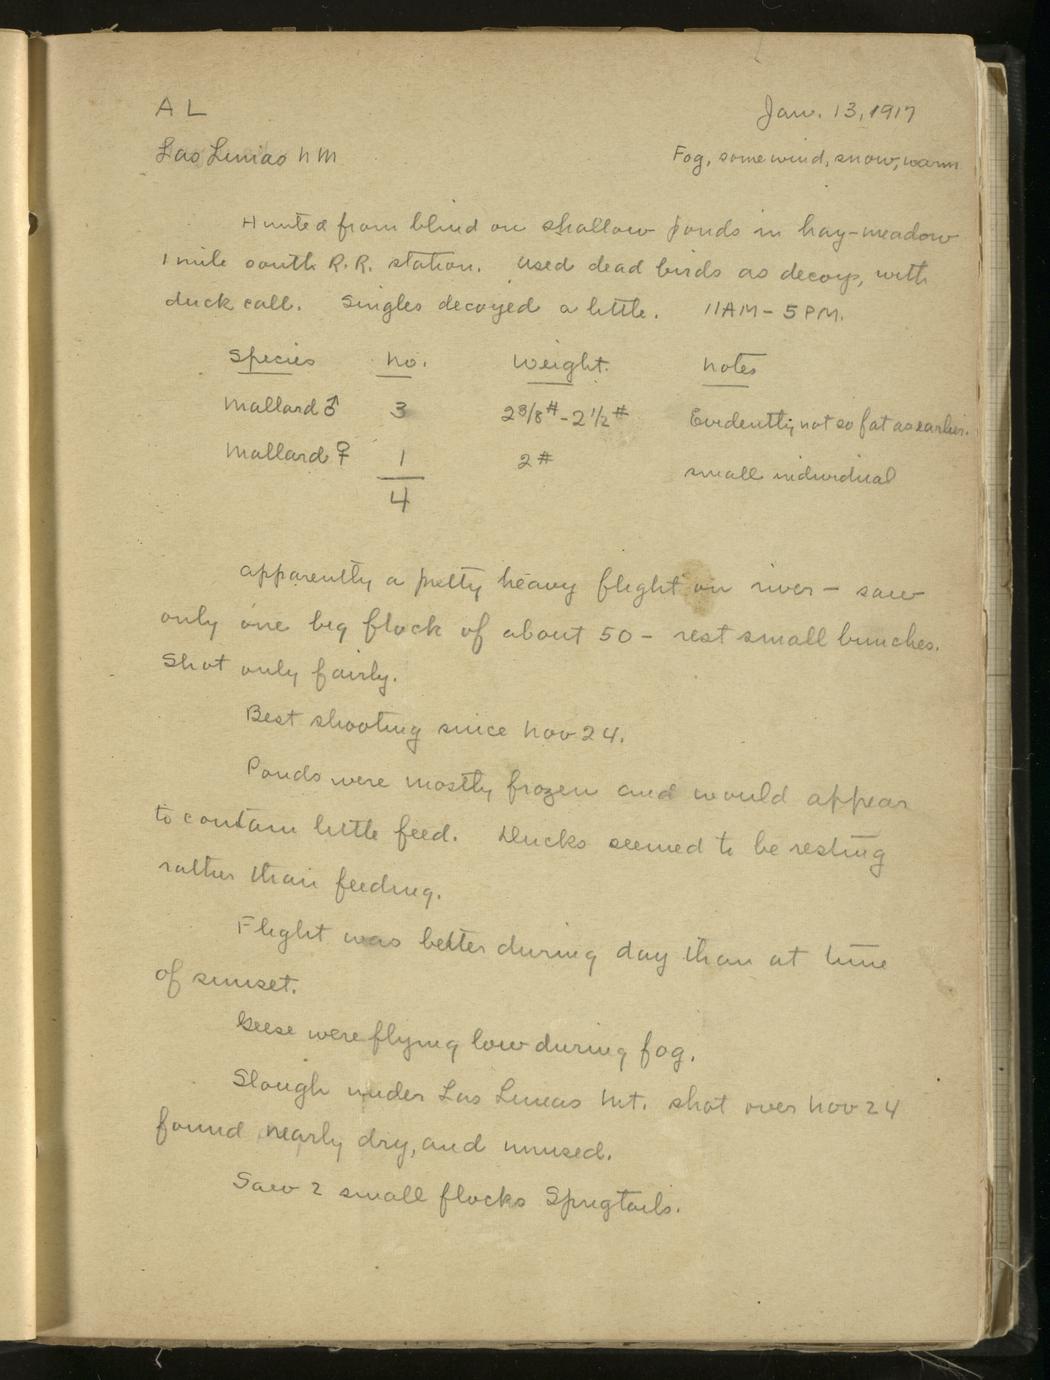 A L
Jan. 13, 1917
Las Lunias N M
Fog, some wind, snow, warm
Hunted from blind on shallow ponds in hay-meadow
1 mile south R.R. station. Used dead birds as decoys, with
duck call. Singles decoyed a little. 11AM - 5PM.
Species no. Weight. notes
Mallard ♂ 3 2 3/8 # - 2 1/2 # Evidently not so fat as earlier.
Mallard ♀ 1 2 # small individual
4
Apparently a pretty heavy flight on river - saw
only one big flock of about 50 - rest small bunches.
Shot only fairly.
Best shooting since Nov 24.
Ponds were mostly frozen and would appear
to contain little feed. Ducks seemed to be resting
rather than feeding.
Flight was better during day than at time
of sunset.
Geese were flying low during fog.
Slough under Las Lunas Mt. shot over Nov 24
found nearly dry, and unused.
Saw 2 small flocks Sprigtails.